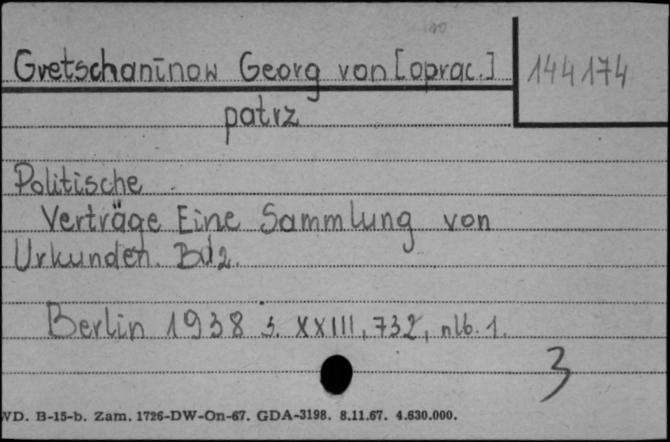 Gretschaninow Georg von [oprac.] 144174
patrz
Politische
Verträge Eine Sammlung von
Urkunden. Bd 2.
Berlin 1938 s. XXIII, 732, nlb. 1.
3
WD. B-15-b. Zam. 1726-DW-On-67. GDA-3198. 8.11.67. 4.630.000.